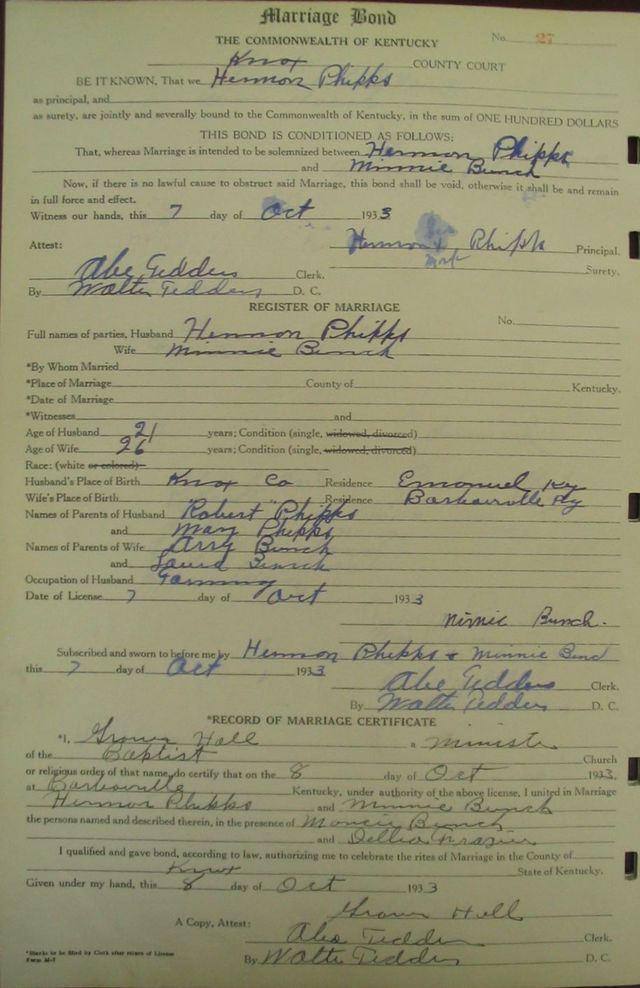 Marriage Bond
THE COMMONWEALTH OF KENTUCKY
No. 27
Knox COUNTY COURT
BE IT KNOWN, That we Hermon Phipps
as principal, and
as surety, are jointly and severally bound to the Commonwealth of Kentucky, in the sum of ONE HUNDRED DOLLARS
THIS BOND IS CONDITIONED AS FOLLOWS:
That, whereas Marriage is intended to be solemnized between Hermon Phipps
and Minnie Bunch
Now, if there is no lawful cause to obstruct said Marriage, this bond shall be void, otherwise it shall be and remain
in full force and effect.
Witness our hands, this 7 day of Oct 1933
Attest: Hermon x Phipps Principal.
mark
Surety.
Abe Tedders Clerk.
By Walter Tedders D. C.
REGISTER OF MARRIAGE
No.
Full names of parties, Husband Hermon Phipps
Wife Minnie Bunch
*By Whom Married
*Place of Marriage County of Kentucky.
*Date of Marriage
*Witnesses and
Age of Husband 21 years; Condition (single, widowed, divorced)
Age of Wife 26 years; Condition (single, widowed, divorced)
Race: (white or colored)
Husband's Place of Birth Knox Co Residence Emanuel Ky
Wife's Place of Birth Residence Barbourville Ky
Names of Parents of Husband Robert Phipps
and Mary Phipps
Names of Parents of Wife Arry Bunch
and Bunch
Occupation of Husband Farming
Date of License 7 day of Oct 1933
Nimie Bunch.
Subscribed and sworn to before me by Hermon Phipps & Minnie Bunch
this 7 day of Oct 1933
Abe Tedders Clerk.
By Walter Tedders D. C.
*RECORD OF MARRIAGE CERTIFICATE
*I, Grover Hall a Minister
of the Baptist Church
or religious order of that name, do certify that on the 8 day of Oct 1933,
at Barbourville Kentucky, under authority of the above license, I united in Marriage
Hermon Phipps and Minnie Bunch
the persons named and described therein, in the presence of Bunch
and Dellia Frazier
I qualified and gave bond, according to law, authorizing me to celebrate the rites of Marriage in the County of
Knox State of Kentucky.
Given under my hand, this 8 day of Oct 1933
Grover Hall
A Copy, Attest: Abe Tedders Clerk.
By Walter Tedders D. C.
*Blanks to be filled by Clerk after return of License
Form M-7